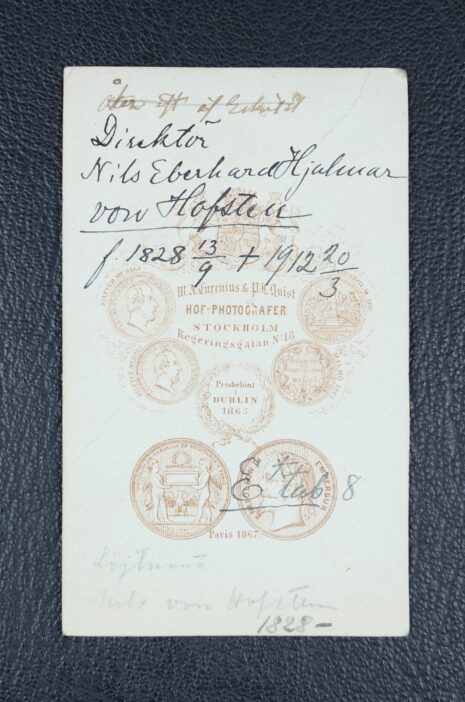 Direktör
Nils Eberhard Hjalmar
von Hofsten
f. 1828 13/9 † 1912 20/3
W. A. Eurenius & P. L. Quist
HOF-PHOTOGRAFER
STOCKHOLM
Regeringsgatan No 18.
Prisbelönt
i
DUBLIN
1865
E tab 8
Paris 1867
Löjtnant
Nils von Hofsten
1828-